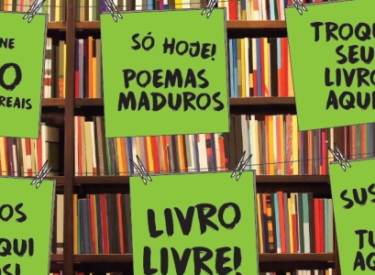 NE
O
REAIS
SÓ HOJE!
POEMAS
MADUROS
TROQU
SEU
LIVRO
AQUI
OS
QUI
S!
LIVRO
LIVRE!
SUS
TU
AQ